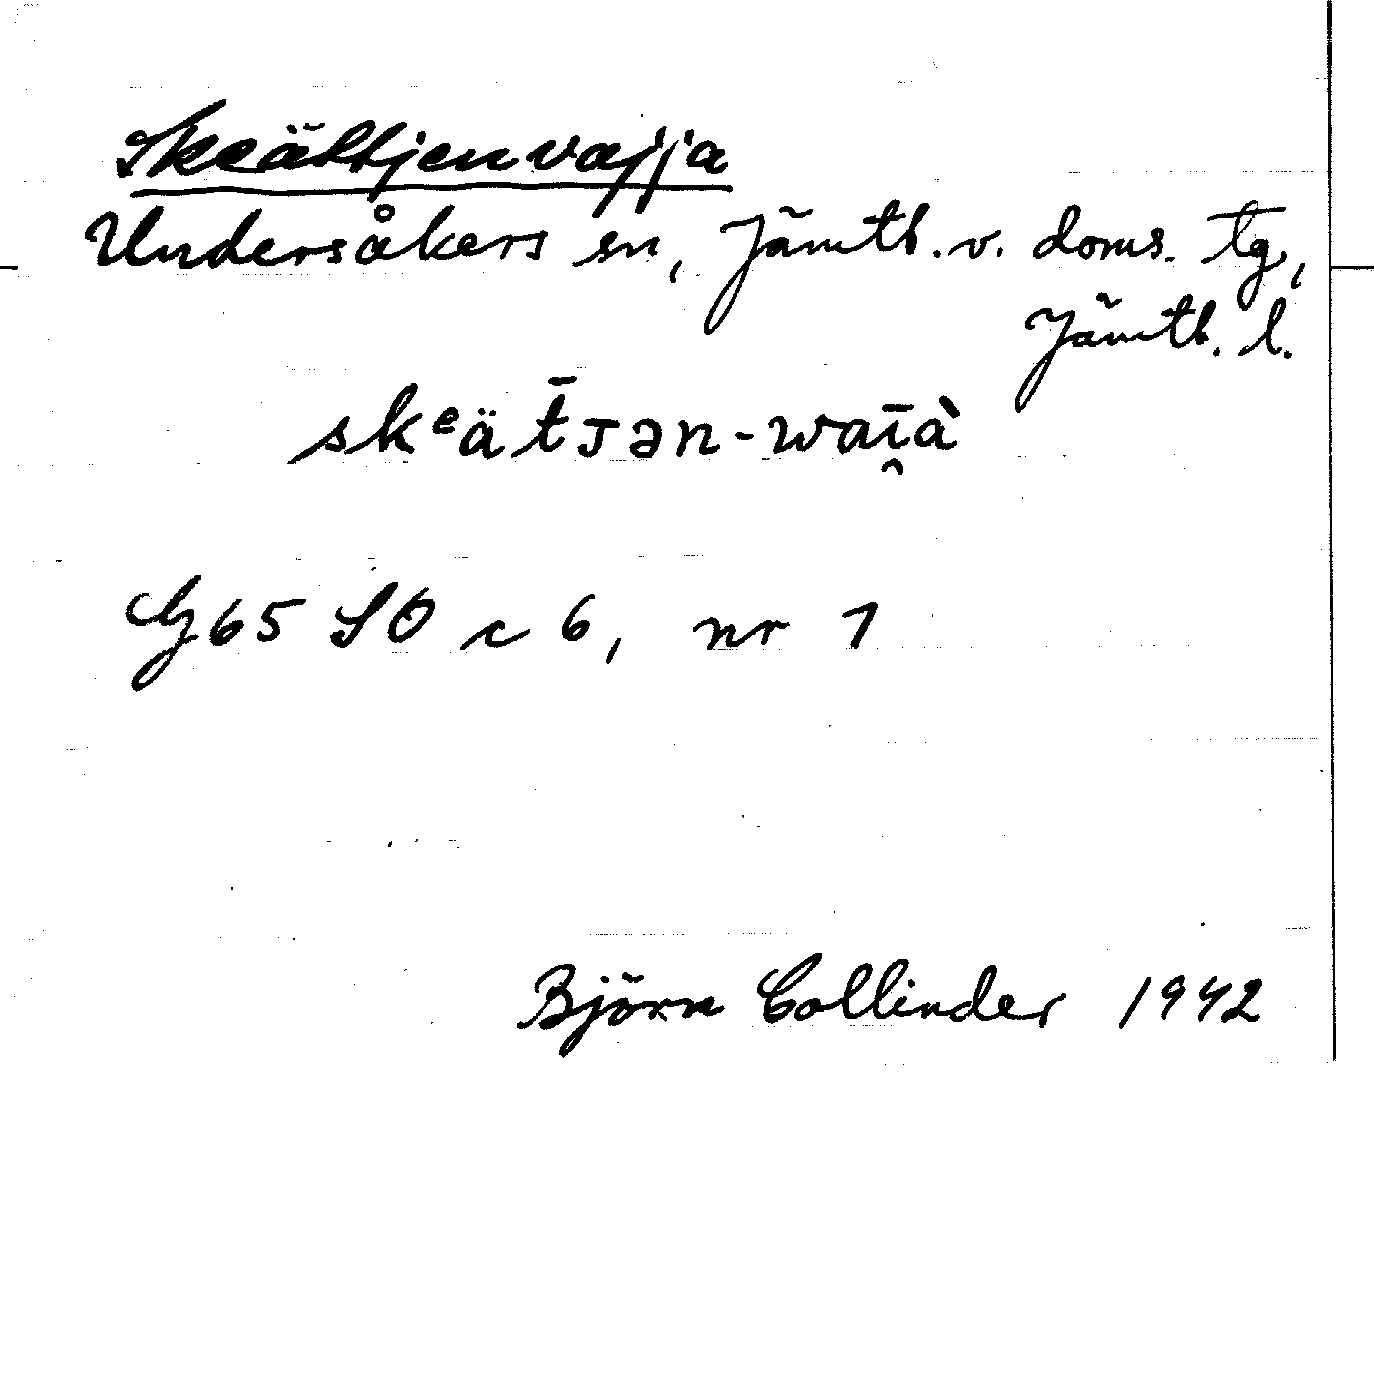 Skeättjenvajja
Undersåkers sn, Jämtl. v. doms. tg,
Jämtl. l.
skᵉät̄ᴊən-waī̯à
G65 SO c 6, nr 1
Björn Collinder 1942